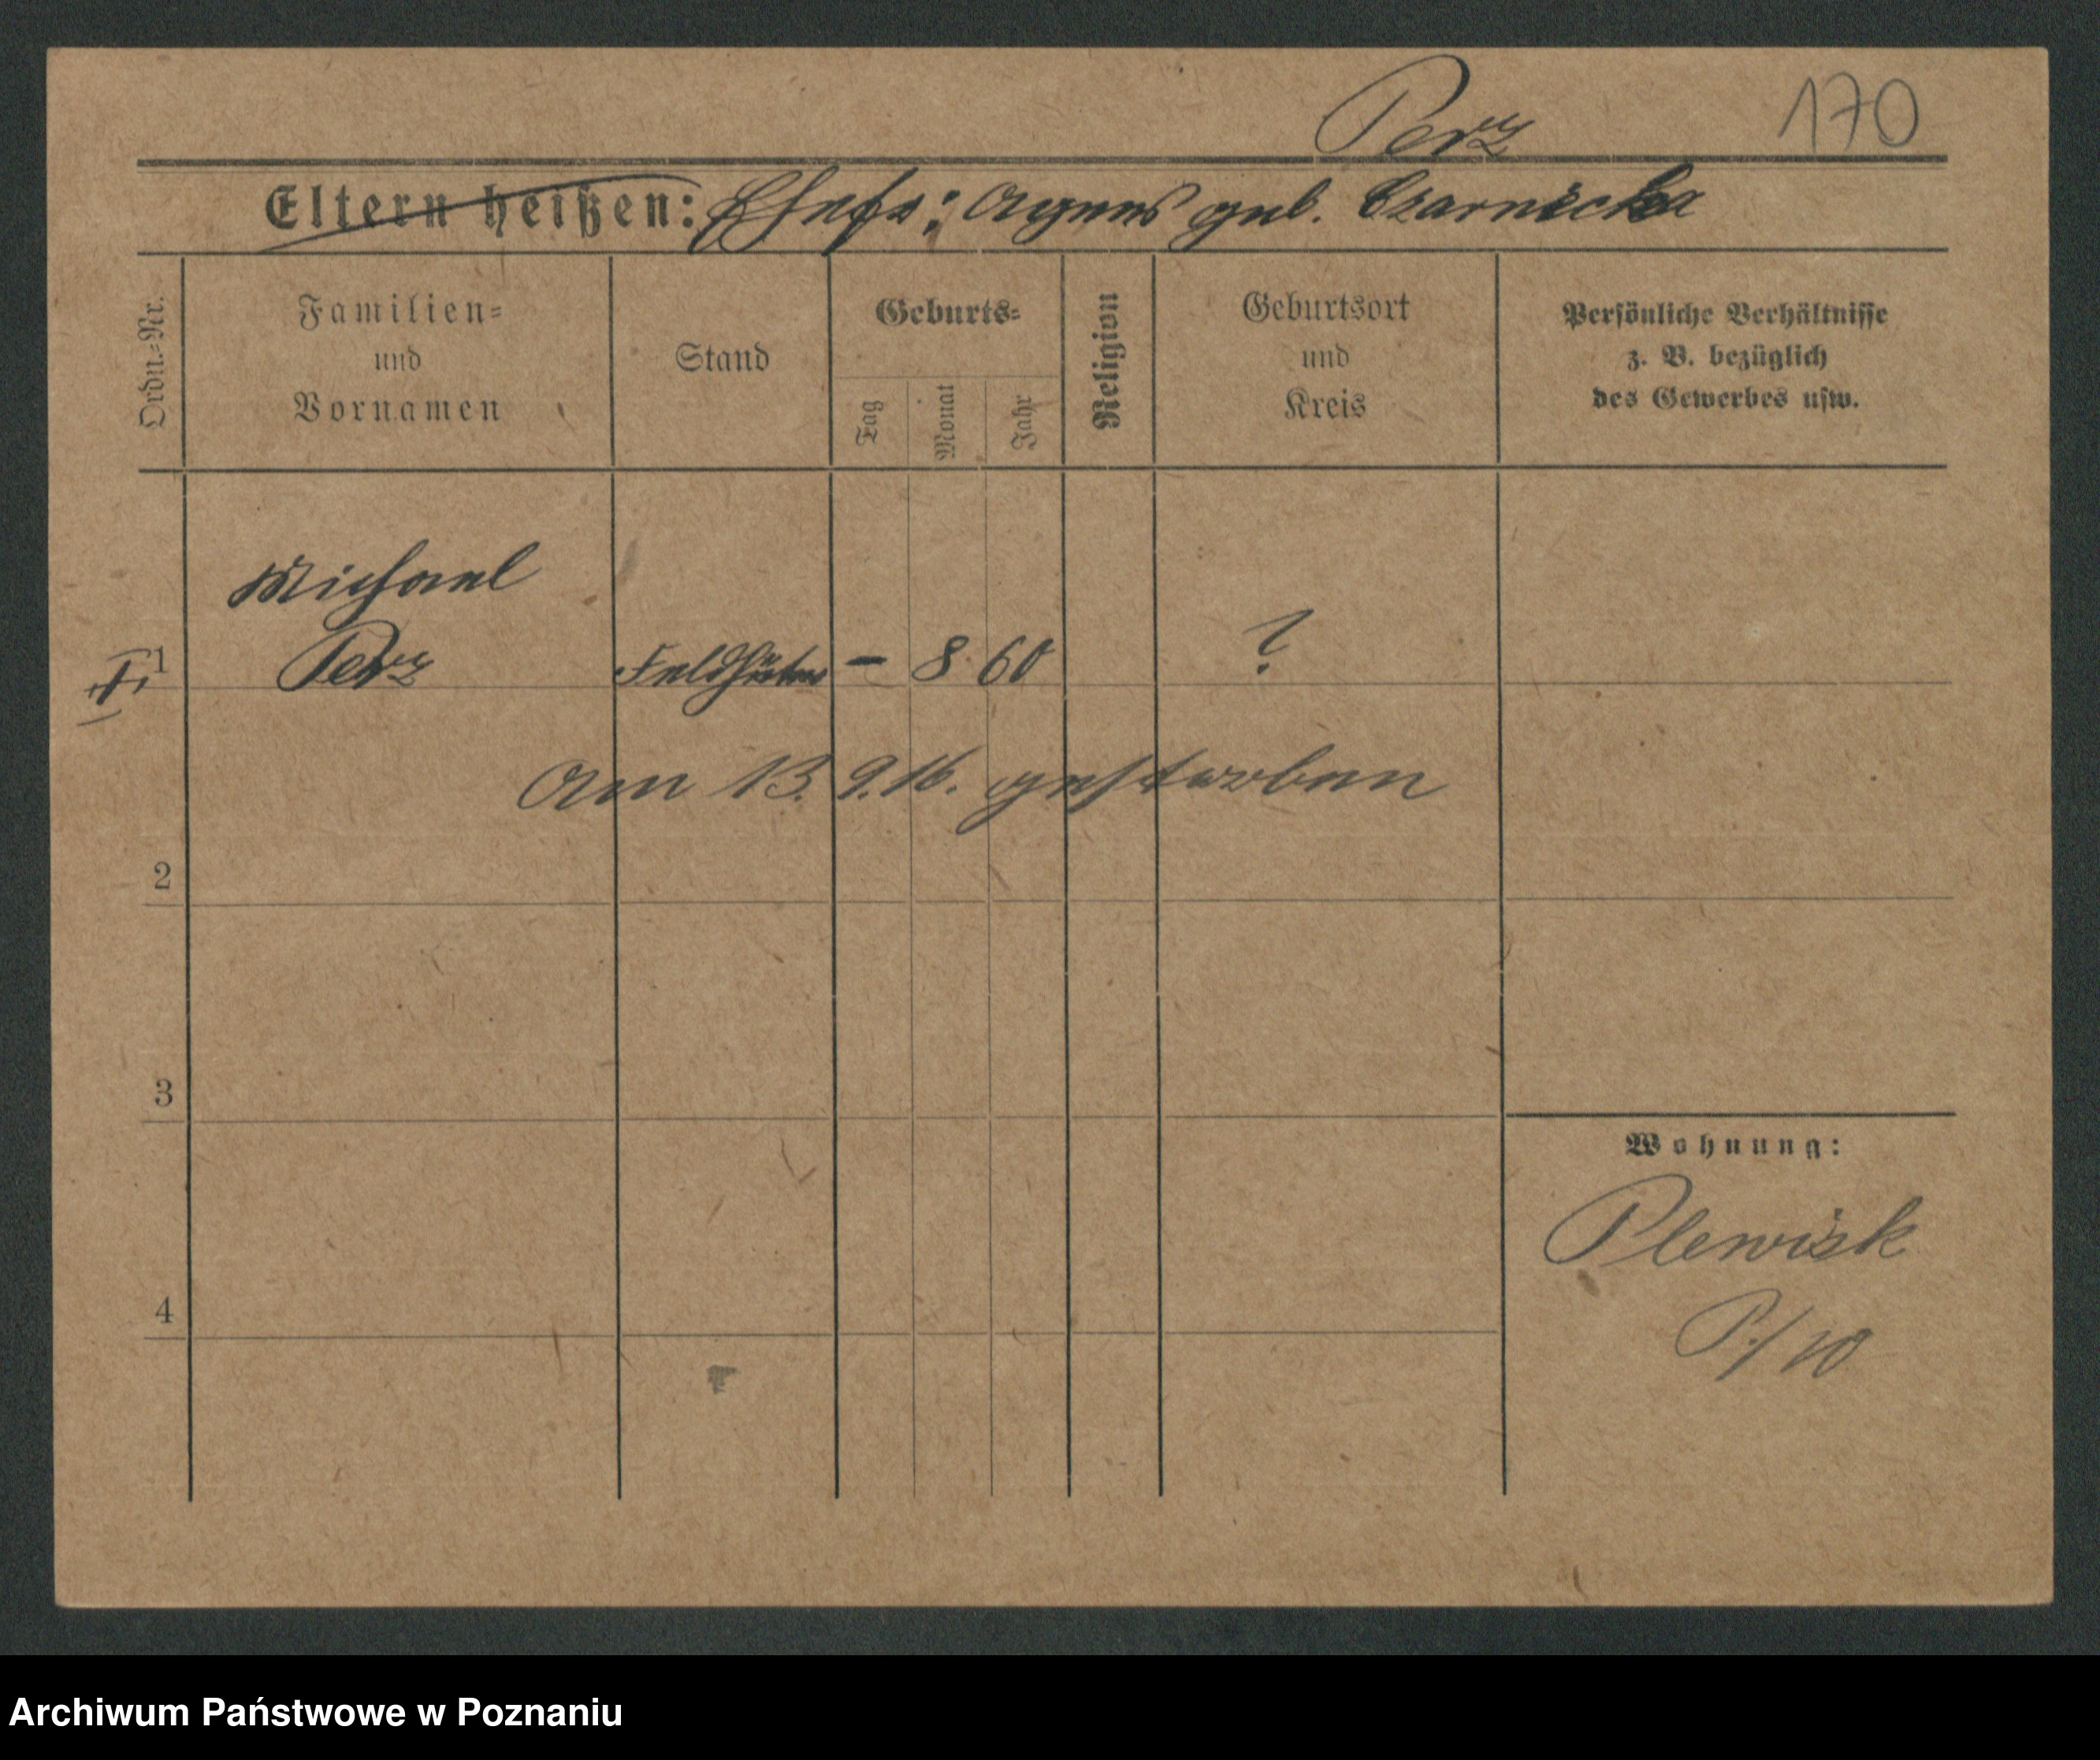 Perz 170
Eltern heißen: Ehefr: Agnes geb. Czarnicka
Ordn.-Nr.
Familien=
und
Vornamen
Stand
Geburts=
Tag
Monat
Jahr
Religion
Geburtsort
und
Kreis
Persönliche Verhältnisse
z. B. bezüglich
des Gewerbes usw.
Michael
1 Perz Feldhüter – 8 60 ?
am 13. 9. 16. gestorben
2
3
Wohnung:
Plewisk
P./10
4
Archiwum Państwowe w Poznaniu